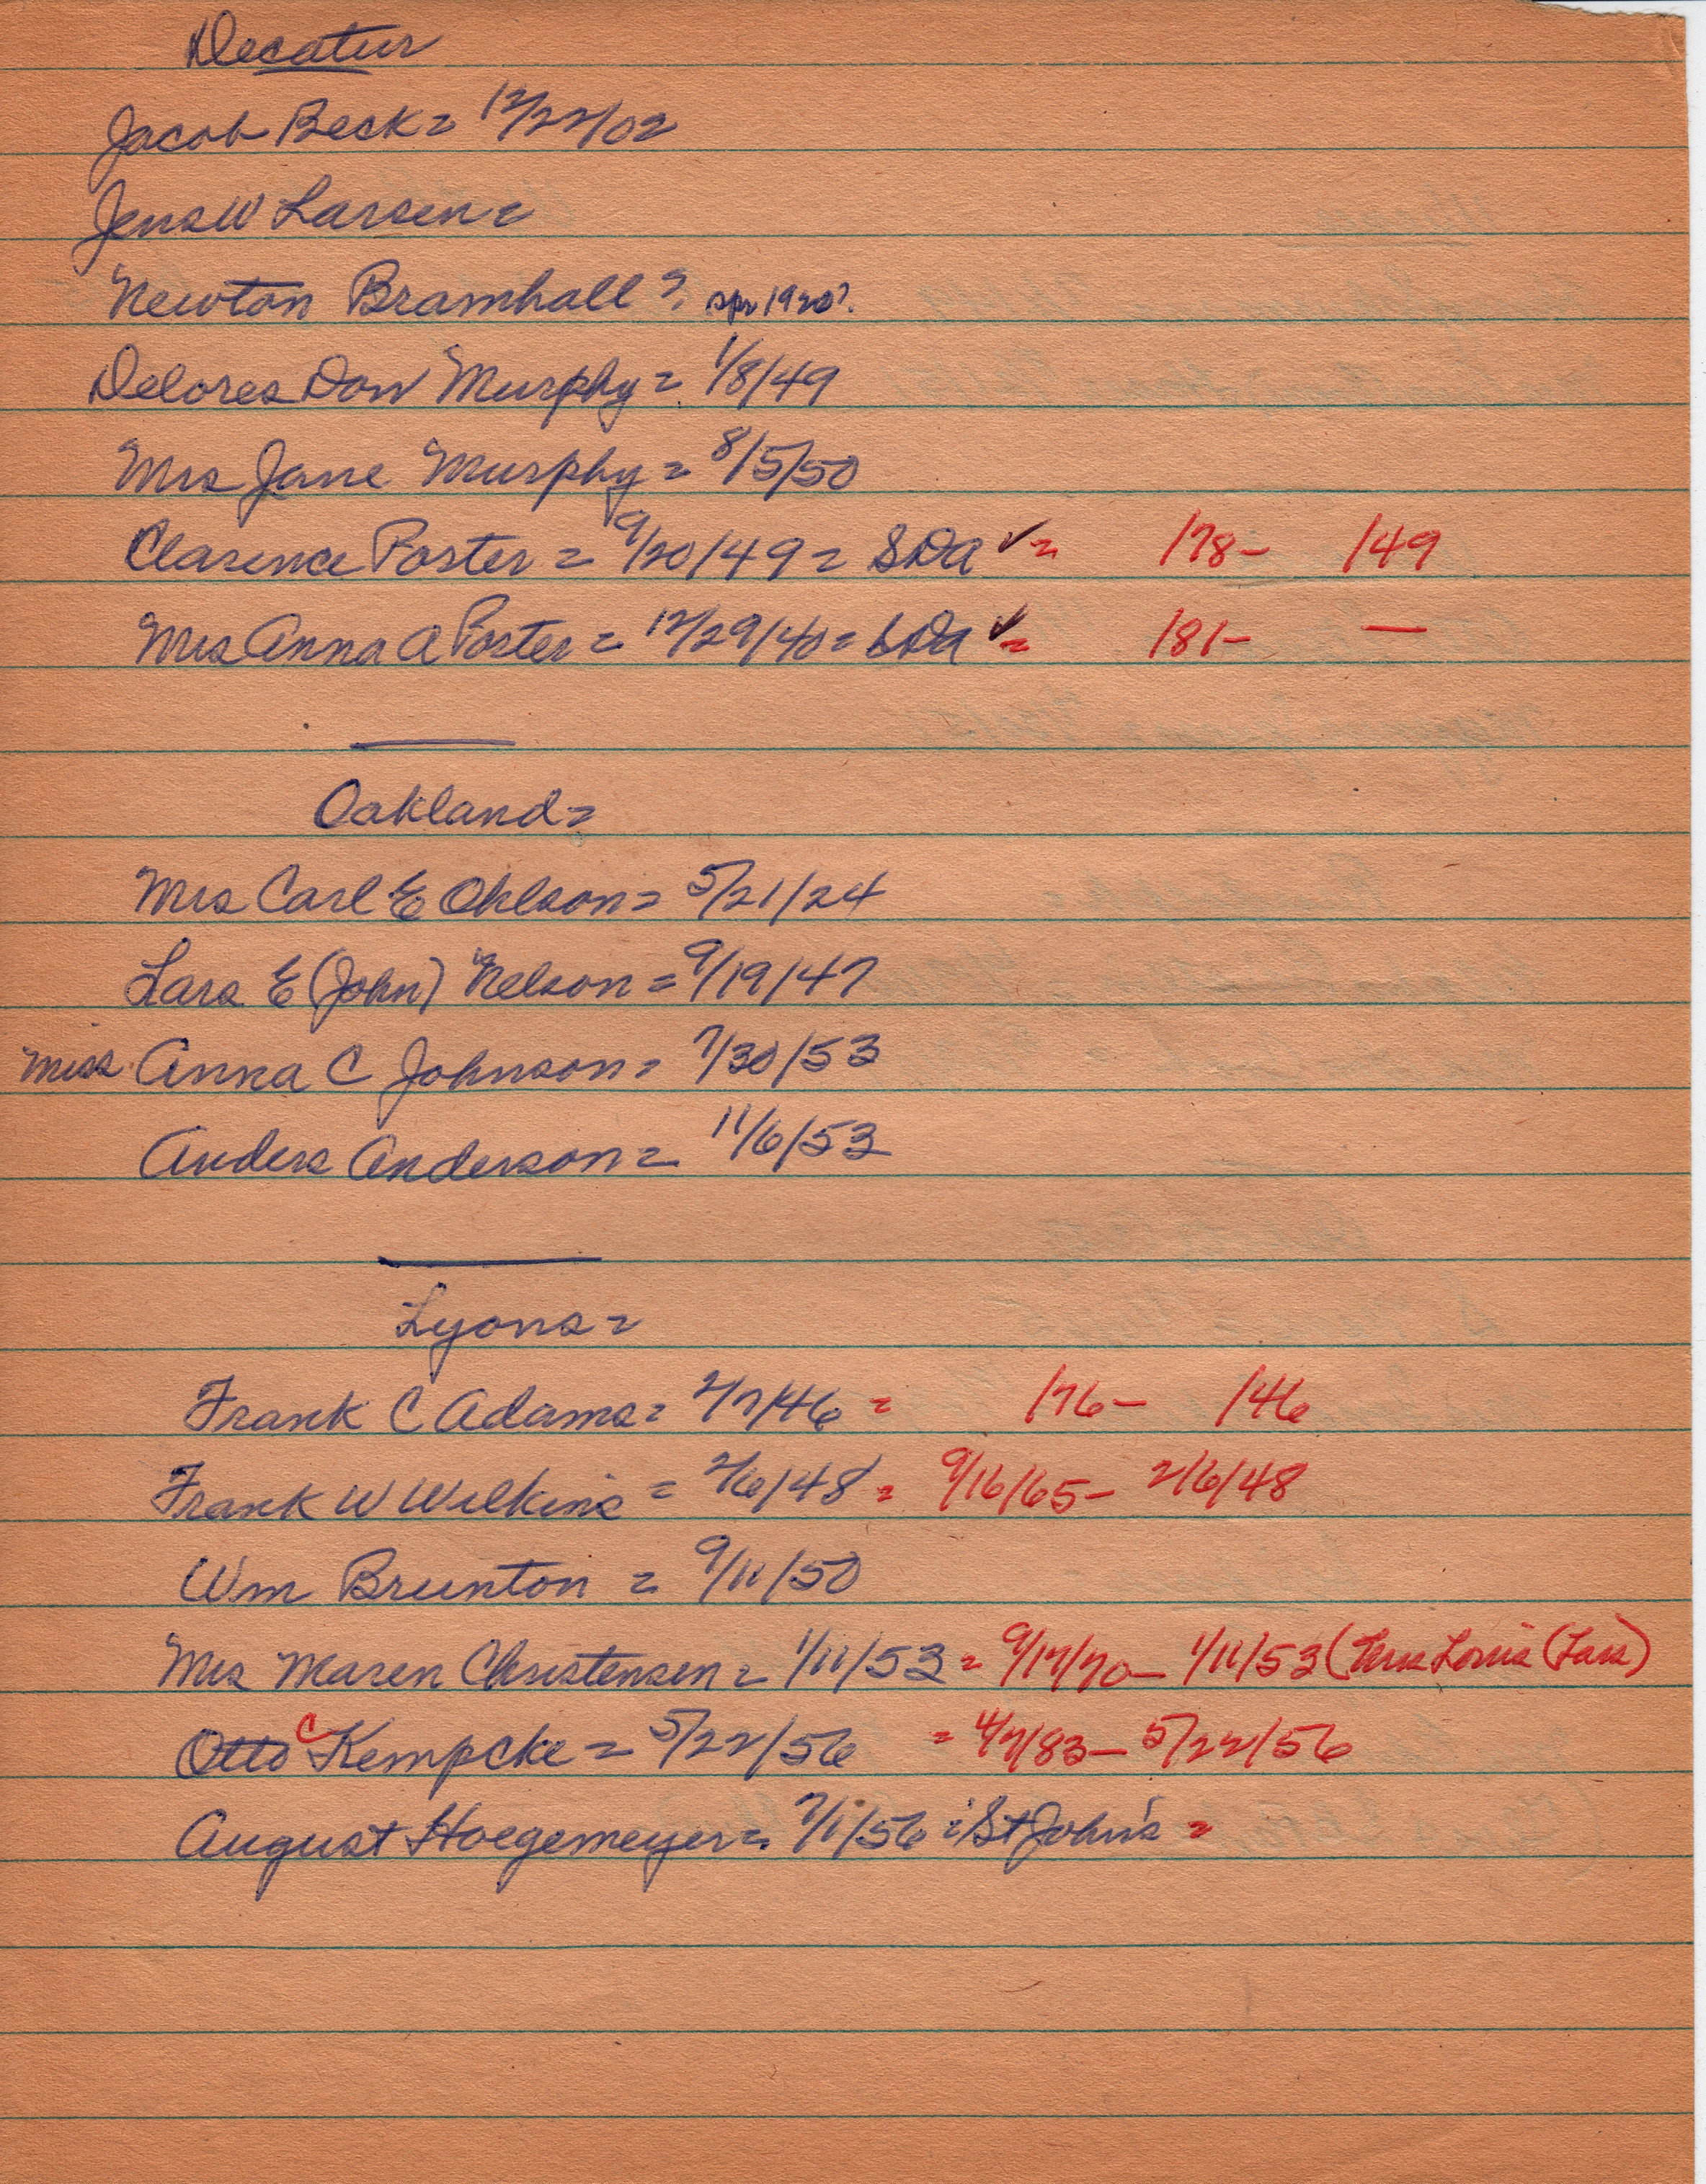 Decatur
Jacob Beck = 12/22/02
Jens W Larsen =
Newton Bramhall ? Apr 1920?
Delores Don Murphy = 1/8/49
Mrs Jane Murphy = 8/5/50
Clarence Poster = 9/20/49 = SDA ✓ = /78 - /49
Mrs Anna A Poster = 12/29/40 = SDA ✓ = /81 - —
Oakland =
Mrs Carl E Ohlson = 5/21/24
Lars E (John) Nelson = 9/19/47
Miss Anna C Johnson = 7/30/53
Anders Anderson = 11/6/53
Lyons =
Frank C Adams = 2/7/46 = /76 - /46
Frank W Wilkins = 2/6/48 = 9/16/65 - 2/6/48
Wm Brunton = 9/11/50
Mrs Maren Christensen = 1/11/53 = 9/17/70 - 1/11/53 (Mrs Louis (Lars)
Otto C Kempcke = 5/22/56 = 4/7/83 - 5/22/56
August Hoegemeyer = 7/1/56 = St John's =